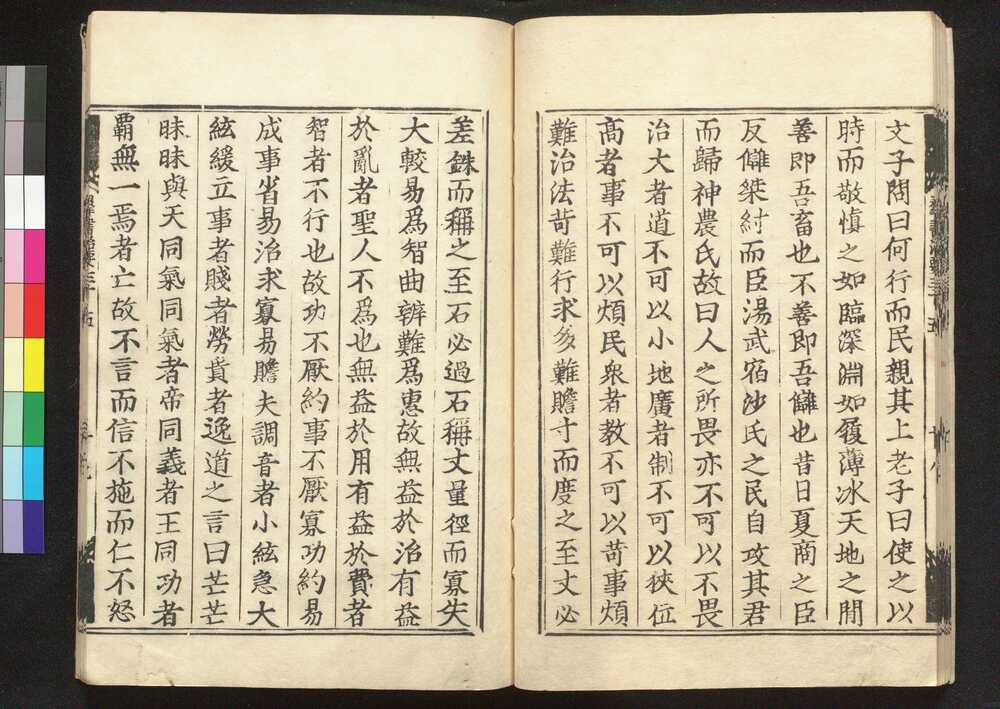 文子問曰何行而民親其上老子曰使之以
時而敬慎之如臨深淵如履薄冰天地之間
善即吾畜也不善即吾讎也昔日夏商之臣
反讎桀紂而臣湯武宿沙氏之民自攻其君
而歸神農氏故曰人之所畏亦不可以不畏
治大者道不可以小地廣者制不可以狹位
高者事不可以煩民衆者教不可以苛事煩
難治法苛難行求多難贍寸而度之至丈必
差銖而稱之至石必過石稱丈量徑而寡失
大較易爲智曲辨難爲惠故無益於治有益
於亂者聖人不爲也無益於用有益於費者
智者不行也故功不厭約事不厭寡功約易
成事省易治求寡易贍夫調音者小絃急大
絃緩立事者賤者勞貴者逸道之言曰芒芒
昧昧與天同氣同氣者帝同義者王同功者
覇無一焉者亡故不言而信不施而仁不怒